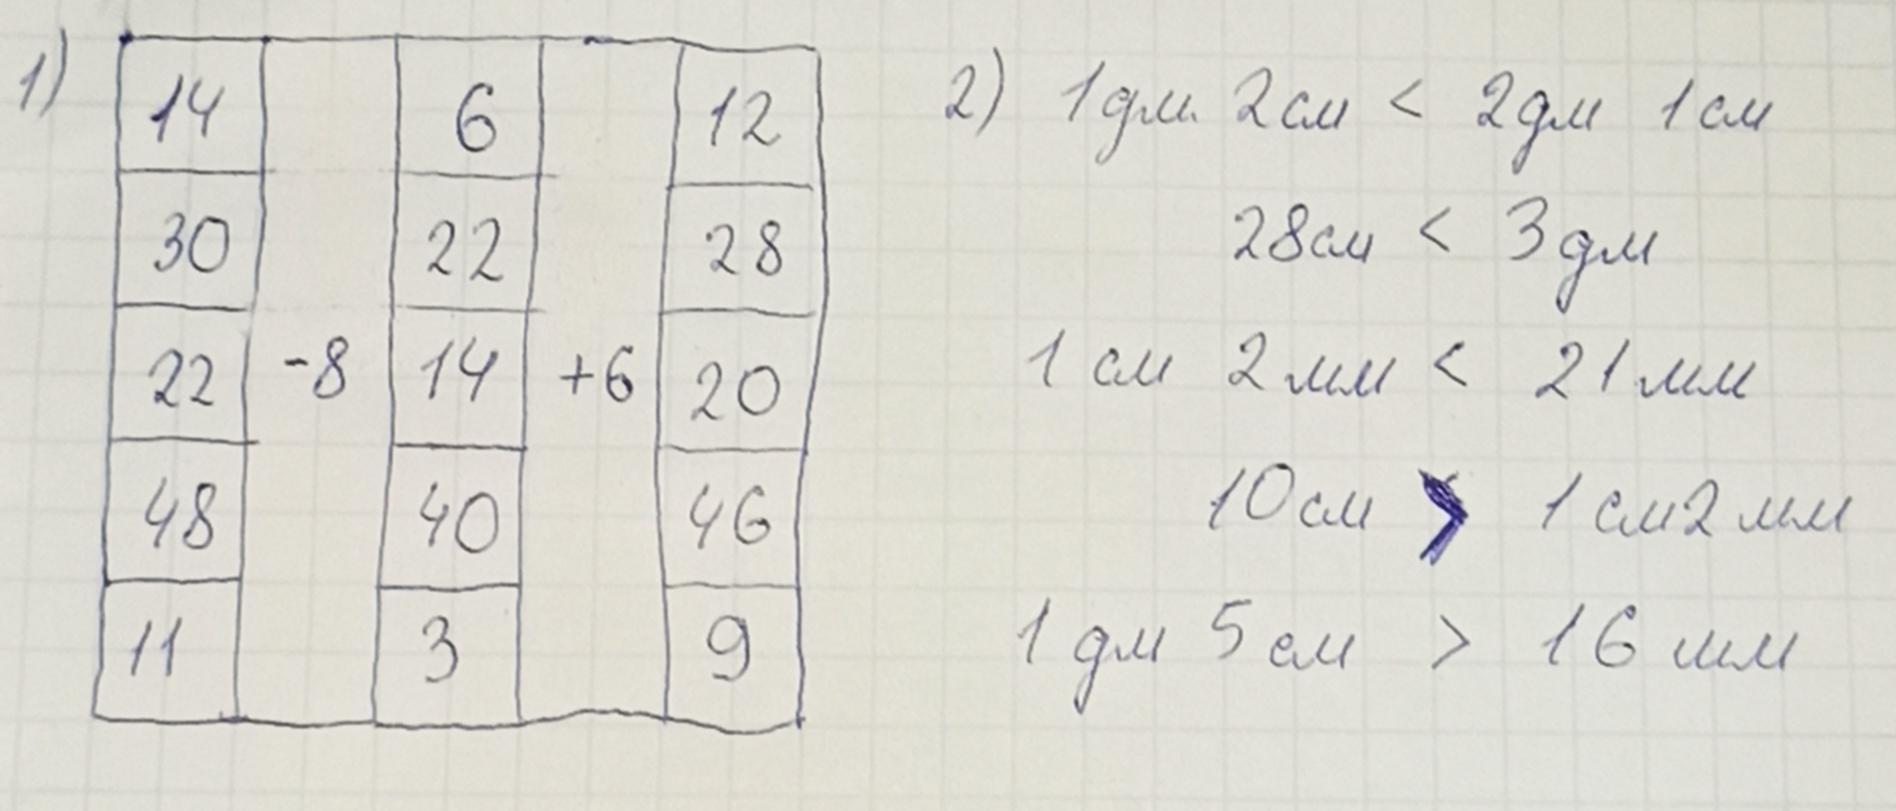 1)
14 6 12
30 22 28
22 -8 14 +6 20
48 40 46
11 3 9
2) 1дм. 2см < 2дм 1см
28см < 3дм
1 см 2 мм < 21 мм
10см > 1 см2 мм
1 дм 5 см > 16 мм